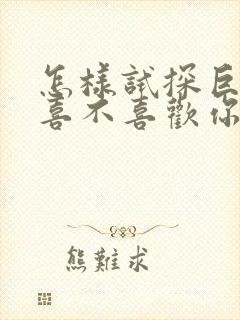 怎樣試探巨
喜不喜歡你
熊難求